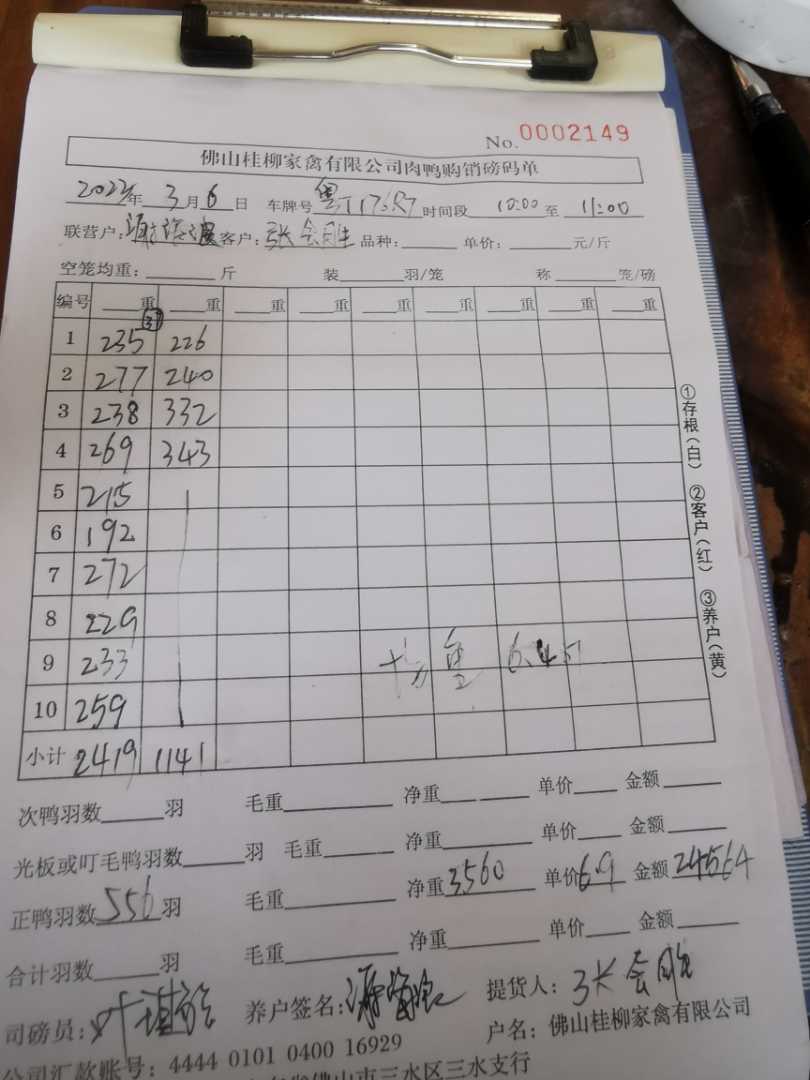 No. 0002149
佛山桂柳家禽有限公司肉鸭购销磅码单
2023年 3月 6日 车牌号 时间段 10:00 至 11:00
联营户: 客户:张会胜 品种: 单价: 元/斤
空笼均重: 斤 装 羽/笼 称 笼/磅
编号 重 重 重 重 重 重 重 重 重
1 235 226
2 277 240
3 238 332
4 269 343
5 215
6 192
7 272
8 229
9 233
10 259
小计 2419 1141
①存根(白) ②客户(红) ③养户(黄)
次鸭羽数 羽 毛重 净重 单价 金额
光板或叮毛鸭羽数 羽 毛重 净重 单价 金额
正鸭羽数 556 羽 毛重 净重 3560 单价 6.9 金额 24564
合计羽数 羽 毛重 净重 单价 金额
司磅员: 养户签名: 提货人:张会胜
公司汇款账号: 4444 0101 0400 16929 户名: 佛山桂柳家禽有限公司
佛山市三水区三水支行